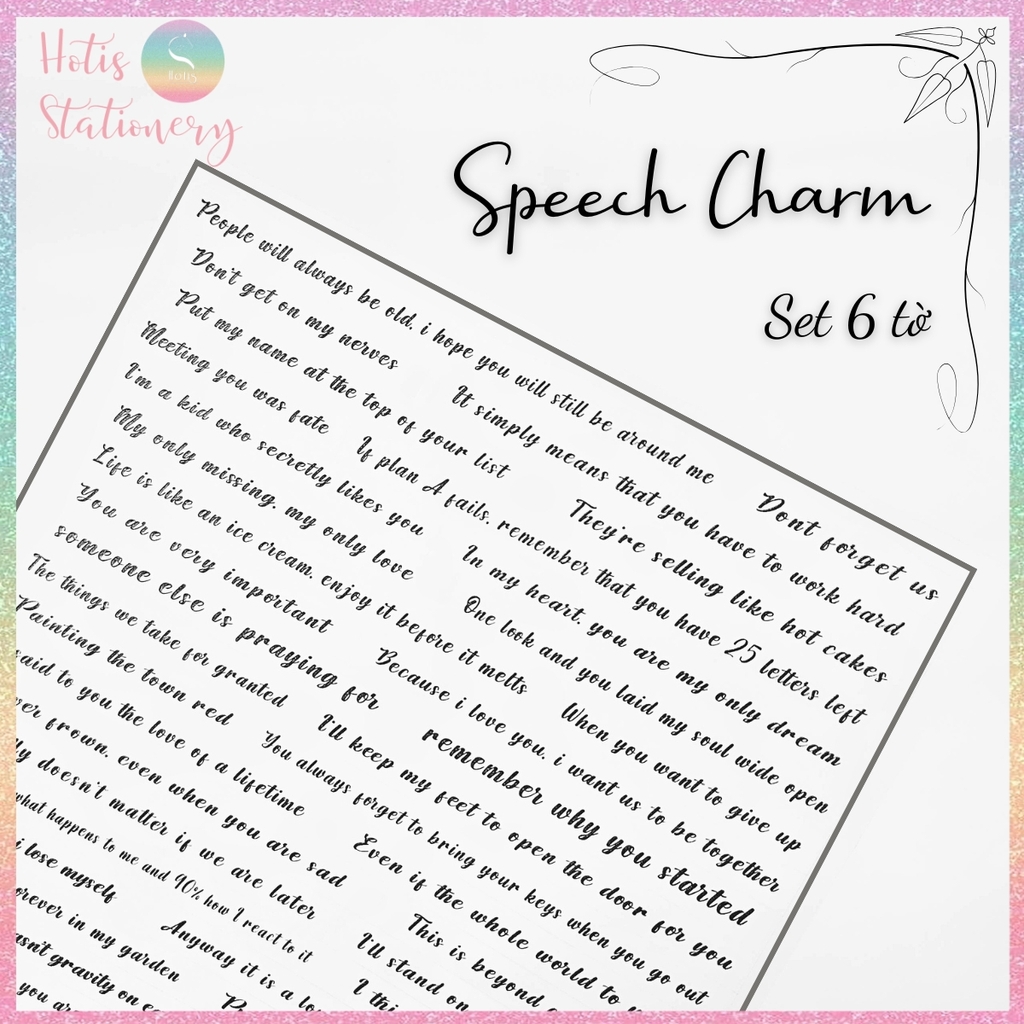 Hotis
Stationery
HOTIS
Speech Charm
Set 6 tờ
People will always be old, i hope you will still be around me
Dont forget us
Don't get on my nerves
It simply means that you have to work hard
Put my name at the top of your list
They're selling like hot cakes
Meeting you was fate
If plan A fails, remember that you have 25 letters left
I'm a kid who secretly likes you
In my heart, you are my only dream
My only missing, my only love
One look and you laid my soul wide open
Life is like an ice cream, enjoy it before it melts
When you want to give up
You are very important
Because i love you, i want us to be together
someone else is praying for
remember why you started
The things we take for granted
I'll keep my feet to open the door for you
Painting the town red
You always forget to bring your keys when you go out
said to you the love of a lifetime
Even if the whole world to
frown, even when you are sad
This is beyond
doesn't matter if we are later
I'll stand on
what happens to me and 90% how I react to it
I thi
i lose myself
Anyway it is a lo
in my garden
gravity on
you are